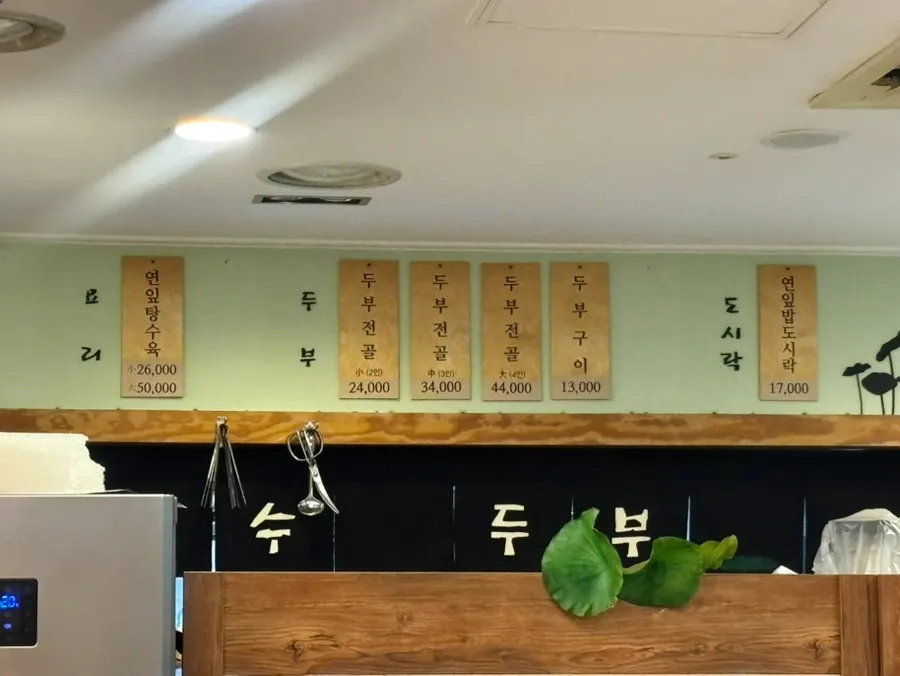 요리
연잎탕수육
小 26,000
大 50,000
두부
두부전골
小 (2인)
24,000
두부전골
中 (3인)
34,000
두부전골
大 (4인)
44,000
두부구이
13,000
도시락
연잎밥도시락
17,000
수 두부